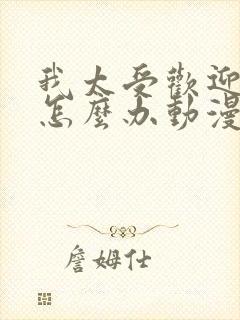 我太受歡迎
怎麼办動漫
詹姆仕